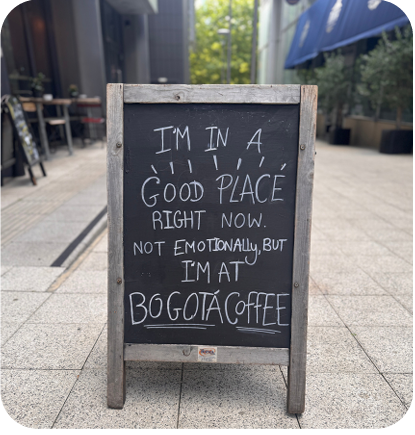 I'M IN A
GOOD PLACE
RIGHT NOW.
NOT EMOTIONALLY, BUT
I'M AT
BOGOTÁ COFFEE